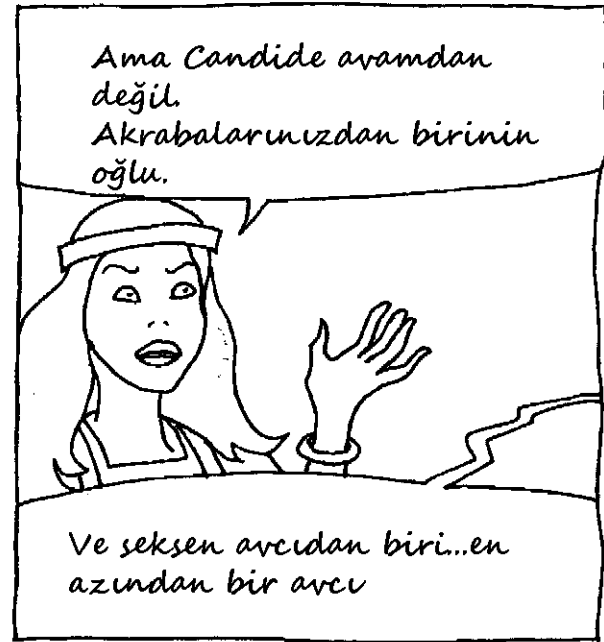 Ama Candide avamdan
değil.
Akrabalarınızdan birinin
oğlu.
Ve seksen avcıdan biri...en
azından bir avcı